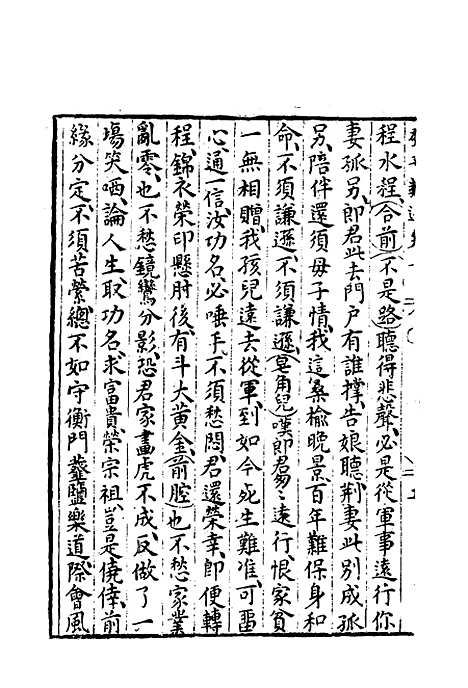 程水程、（合前）不是路聽得悲聲、必是從軍事遠行你
妻孤另、郎君此去門戶有誰撐、告娘聽、荆妻此別成孤
另、陪伴還須母子情、我這桑榆晚景、百年難保身和
命、不須謙遜、不須謙遜、（皂角兒）嘆郎君匆匆遠行、恨家貧
一無相贈、我孩兒遠去從軍、到如今死生難准、可畱
心通一信、汝功名必唾手、不須愁悶、君還榮幸、即便轉
程、錦衣榮、印懸肘後、有斗大黃金、（前腔）也不愁家業
亂零、也不愁鏡鸞分影、恐君家畫虎不成、反做了一
塲笑哂、論人生取功名、求富貴、榮宗祖、豈是僥倖、前
緣分定、不須苦縈、總不如守衡門虀鹽樂道、際會風